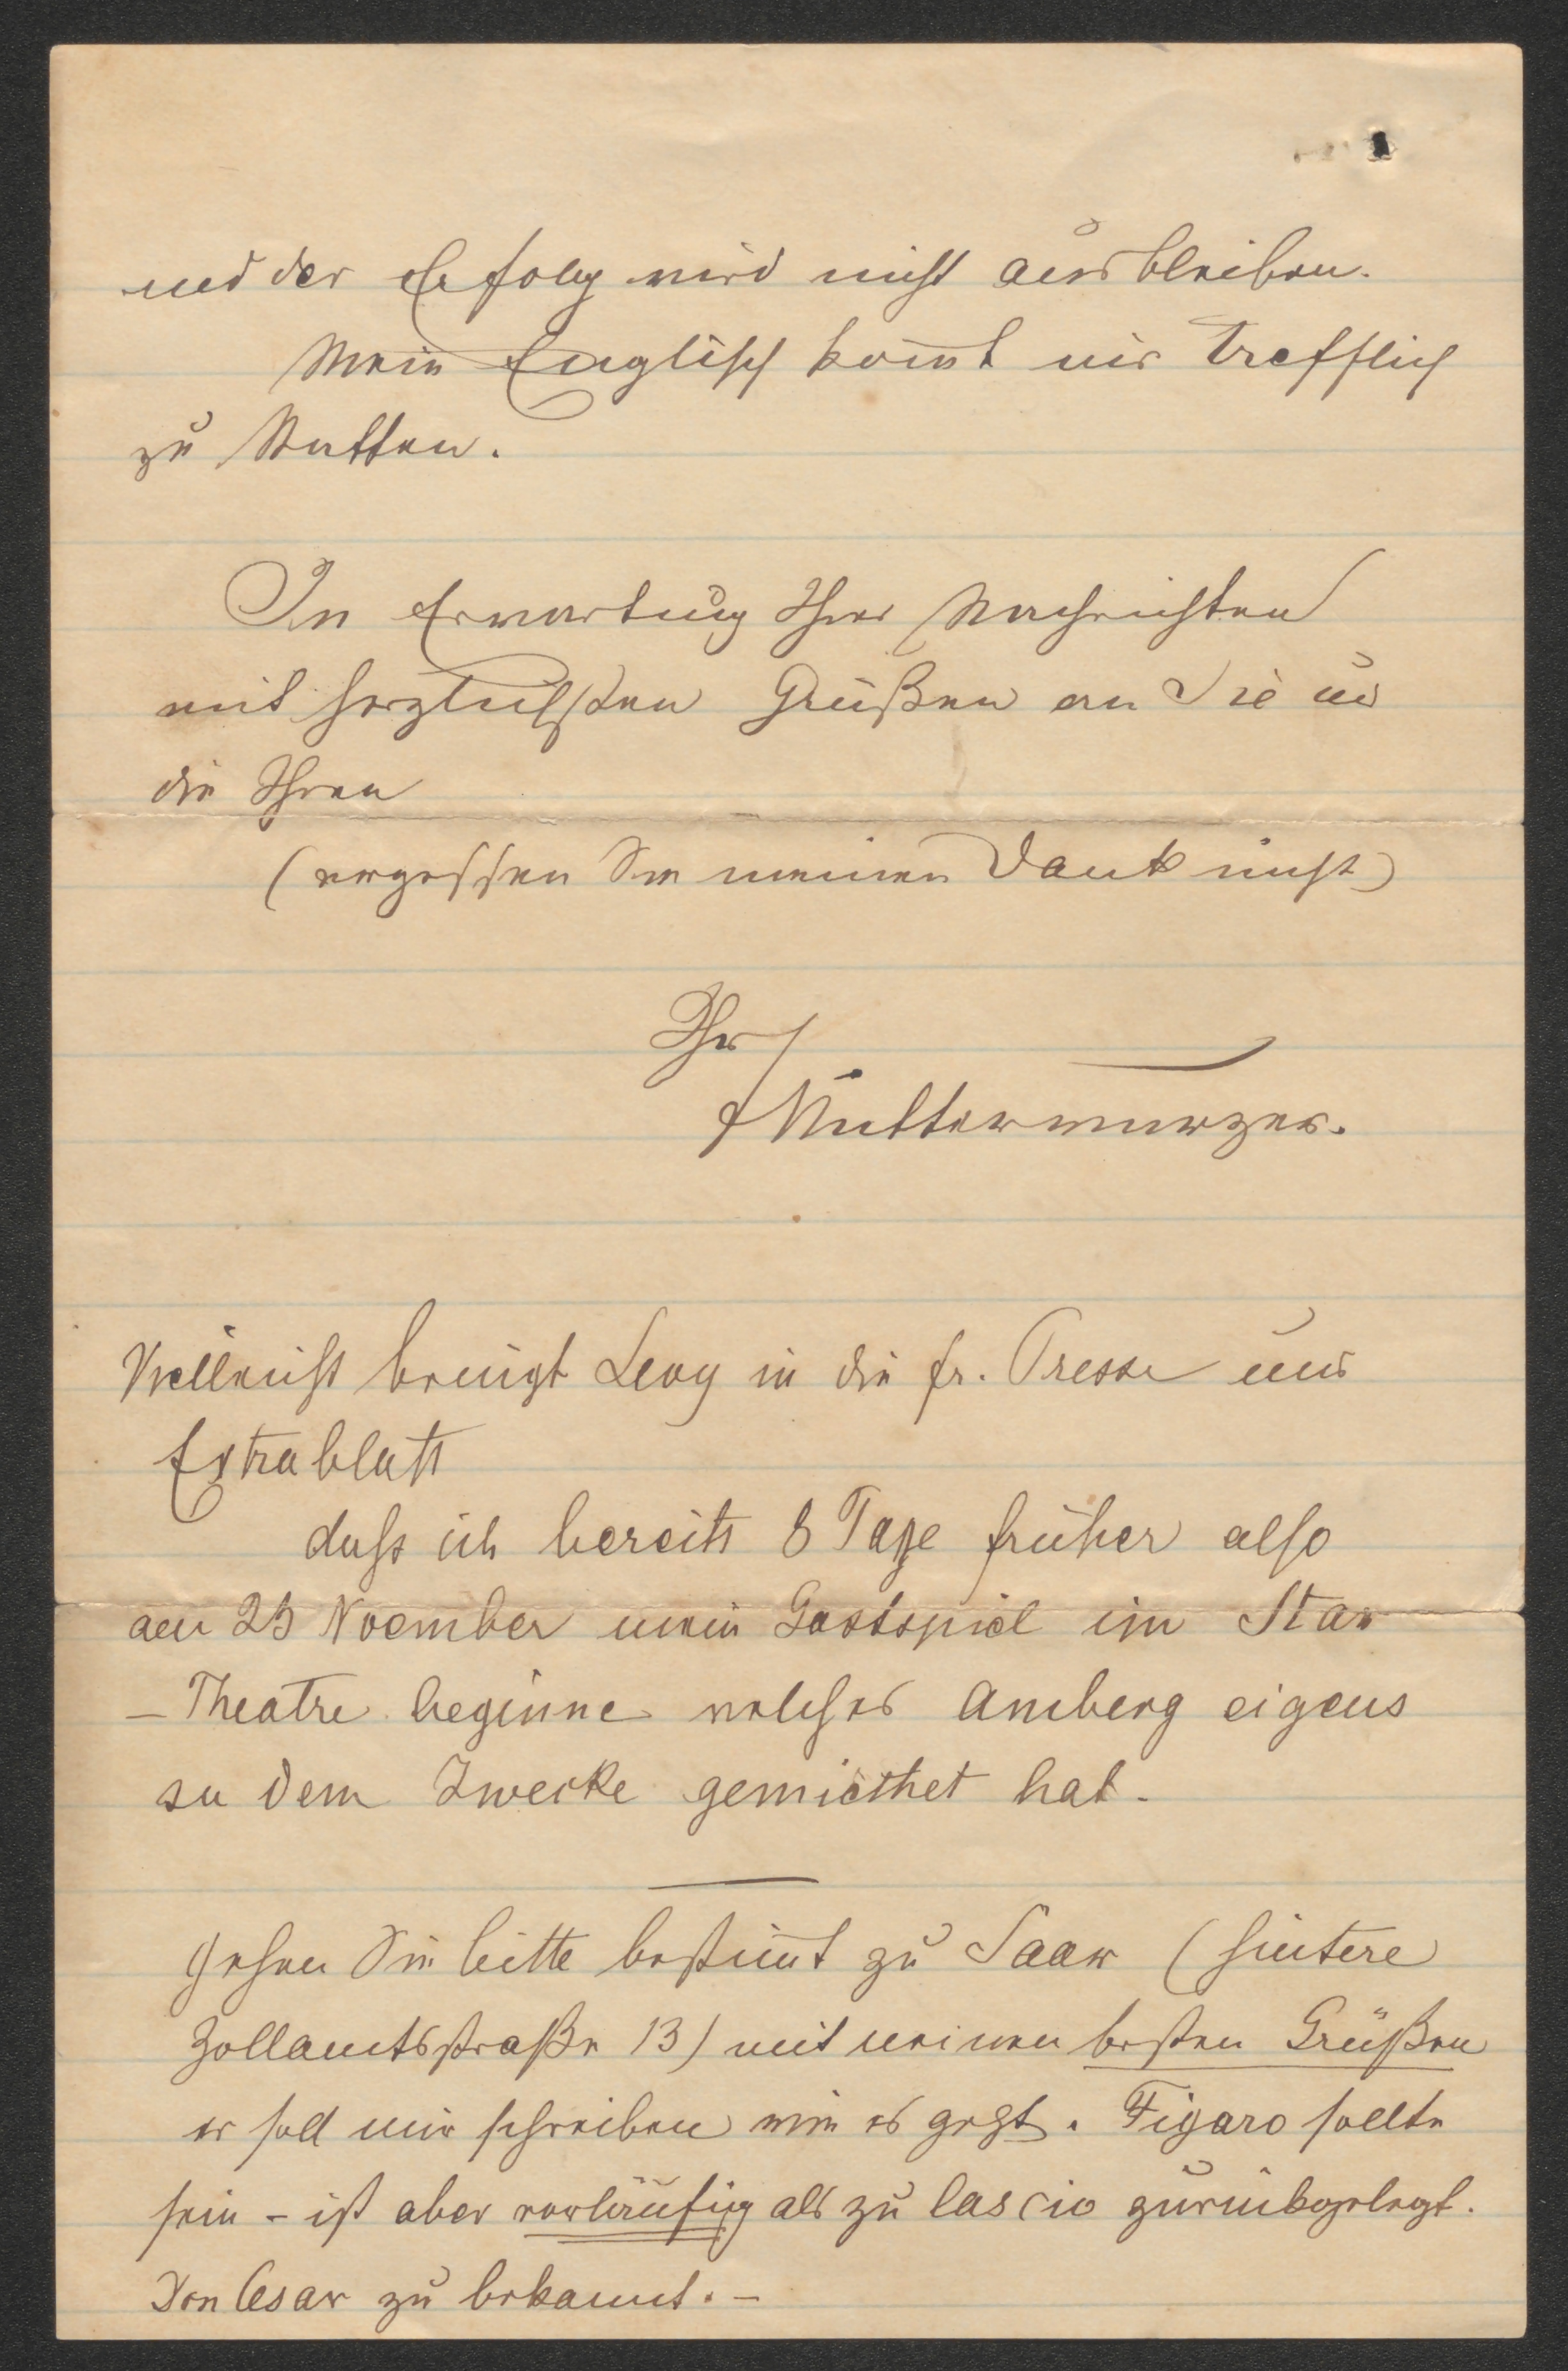 und der Erfolg wird nicht ausbleiben.
Mein Englisch kom̄t mir trefflich
zu Statten.
In Erwartung Ihrer Nachrichten
mit herzlichsten Grüßen an Sie u
die Ihren
(vergessen Sie meinen Dank nicht)
Ihr
F Mitterwurzer.
Vielleicht bringt Levy in die fr. Presse und
Extrablatt
dass ich bereits 8 Tage früher also
am 25 Noember mein Gastspiel im Star
– Theatre beginne welches Amberg eigens
zu dem Zwecke gemiethet hat.
Gehen Sie bitte bestim̄t zu Saar (hintere
Zollamtsstraße 13) mit meinen besten Grüßen
er soll mir schreiben wie es geht. Figaro sollte
sein – ist aber vorläufig als zu lascio zurückgelegt.
Don Cesar zu bekannt. –